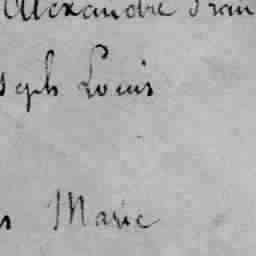 Alexandre Fran
seph Louis
Marie